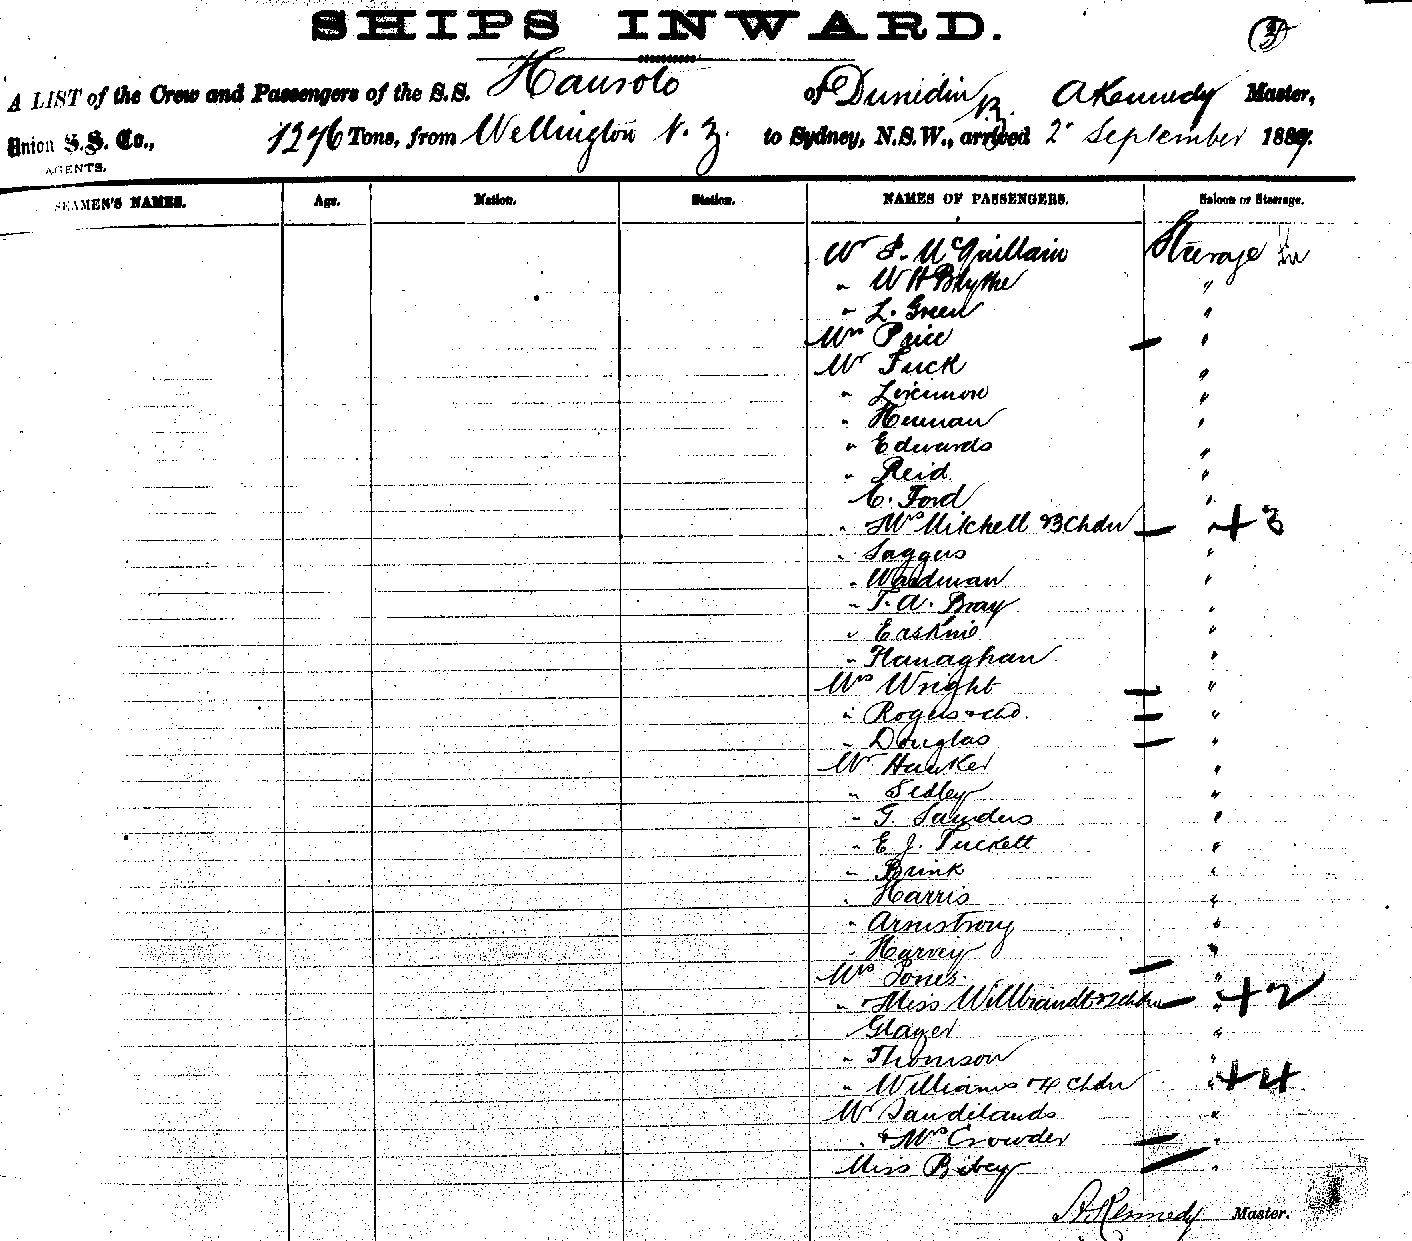 SHIPS INWARD.
A LIST of the Crew and Passengers of the S.S. Hauroto of Dunedin N.Z. A Kennedy Master,
Union S.S. Co., 1276 Tons, from Wellington N.Z. to Sydney, N.S.W., arrived 2" September 188
AGENTS.
SEAMEN'S NAMES. Age. Nation. Station. NAMES OF PASSENGERS. Saloon or Steerage.
Mr McQuillain Steerage
" W H Blythe "
" L. Green "
Mrs Price "
Mr Tuck "
" "
" "
" Edwards "
" Reid "
C. Ford "
" Mrs Mitchell & 3 Chdn " + 3
" Saggers "
" Wardman "
" T. A. Bray "
" Erskine "
" Hanaghan "
Mrs Wright "
" Rogers & chd. "
" Douglas "
Mr "
" Sedley "
" G. Saunders "
" E J. Tuckett "
" Brink "
" Harris "
" Armstrong "
" Harvey "
Mrs Jones "
" & Miss Willbrandt & 2 chdn " + 2
Glazer "
" Thomson "
" Williams & 4 Chdn " + 4
Mr Sandilands "
" & Mrs Crowder "
Miss Bibey "
A. Kennedy Master.